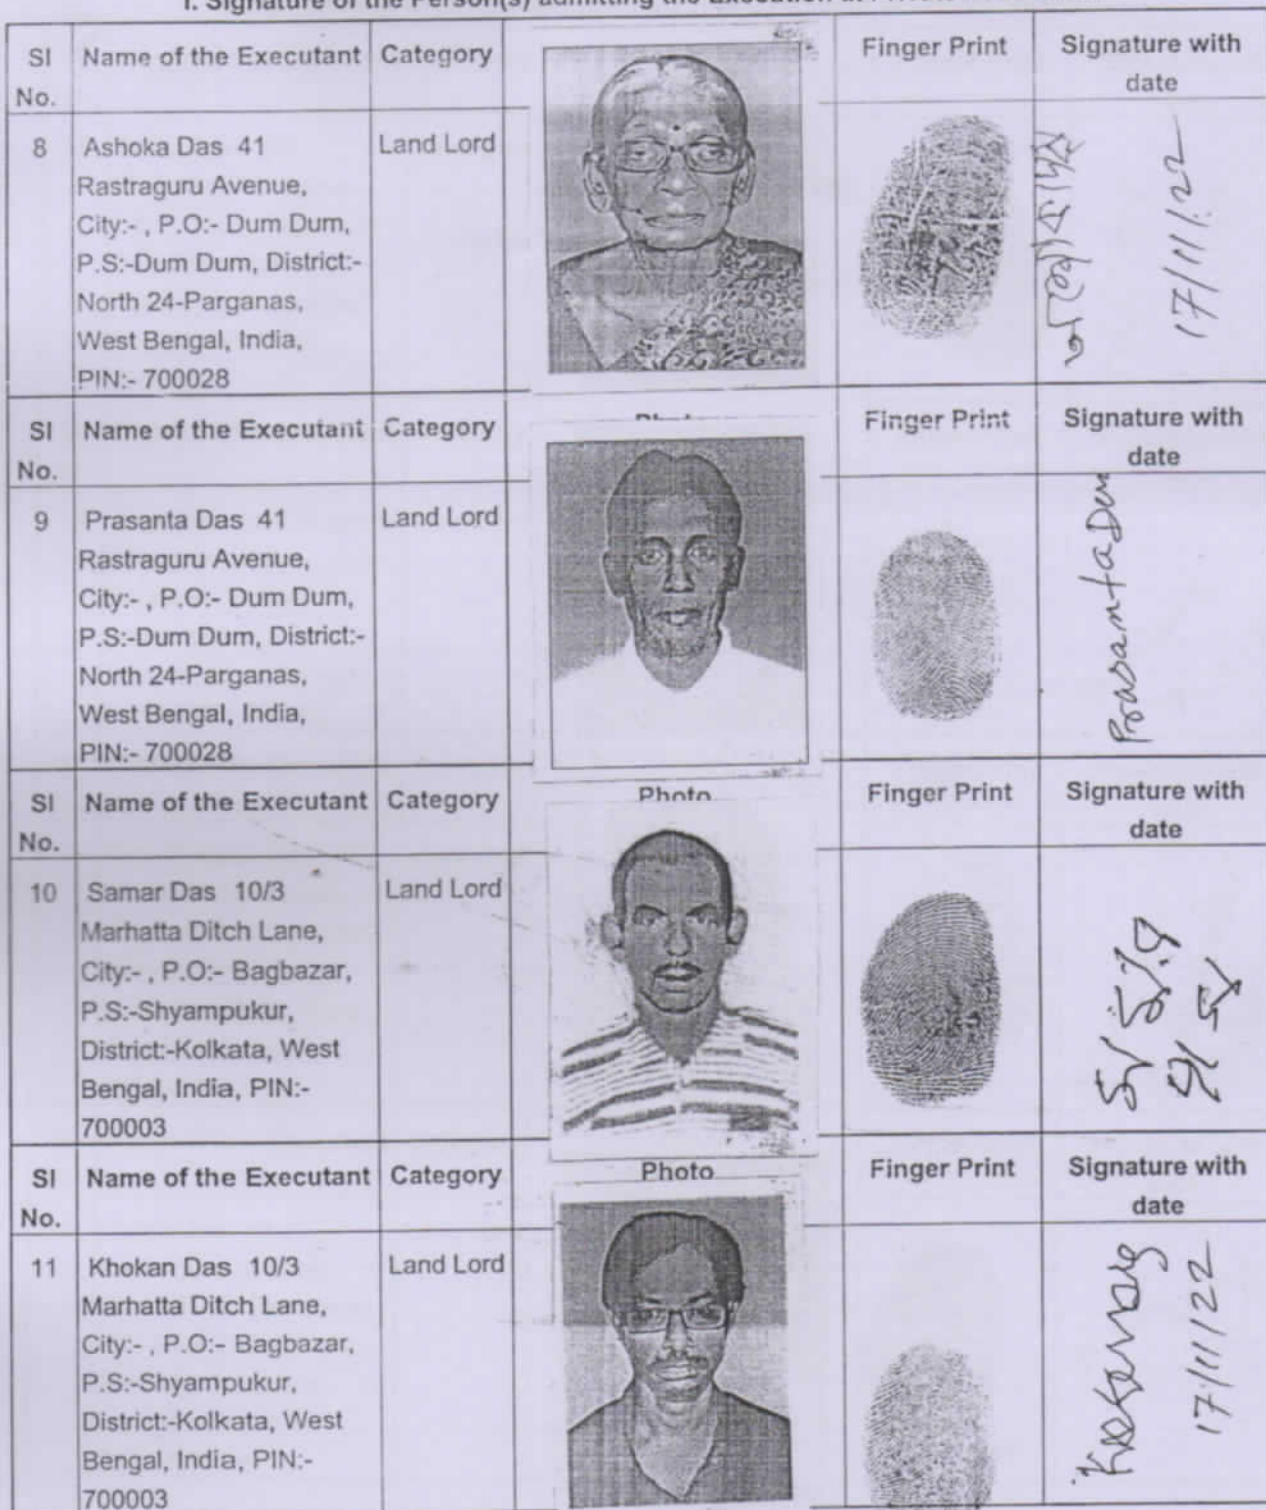 I. Signature of the Person(s) admitting the Execution at Private
Sl No. Name of the Executant Category Finger Print Signature with date
8 Ashoka Das 41 Land Lord
Rastraguru Avenue,
City:- , P.O:- Dum Dum,
P.S:-Dum Dum, District:-
North 24-Parganas,
West Bengal, India,
PIN:- 700028
17/11/22
Sl No. Name of the Executant Category Finger Print Signature with date
9 Prasanta Das 41 Land Lord
Rastraguru Avenue,
City:- , P.O:- Dum Dum,
P.S:-Dum Dum, District:-
North 24-Parganas,
West Bengal, India,
PIN:- 700028
Prasanta Das
Sl No. Name of the Executant Category Photo Finger Print Signature with date
10 Samar Das 10/3 Land Lord
Marhatta Ditch Lane,
City:- , P.O:- Bagbazar,
P.S:-Shyampukur,
District:-Kolkata, West
Bengal, India, PIN:-
700003
Sl No. Name of the Executant Category Photo Finger Print Signature with date
11 Khokan Das 10/3 Land Lord
Marhatta Ditch Lane,
City:- , P.O:- Bagbazar,
P.S:-Shyampukur,
District:-Kolkata, West
Bengal, India, PIN:-
700003
17/11/22